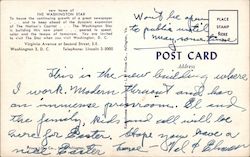 new home of
THE WASHINGTON STAR
To house the continuing growth of a great newspaper
and to keep ahead of the dynamic expansion
of The Nation's Capital The Washington Star
is building this new plant geared to meet
the needs of tomorrow. You are invited
to visit The Star when you visit Washington.
Virginia Avenue at Second Street, S.E.
Washington 3, D.C. Telephone: Lincoln 3-5000
Won't be open
to public until
some time
POST CARD
Address
This is the new building where
I work. Modern throughout and has
an immense pressroom. El and
the family, kids and all will be
over for Easter. Hope you have a
nice Easter time - Hal &